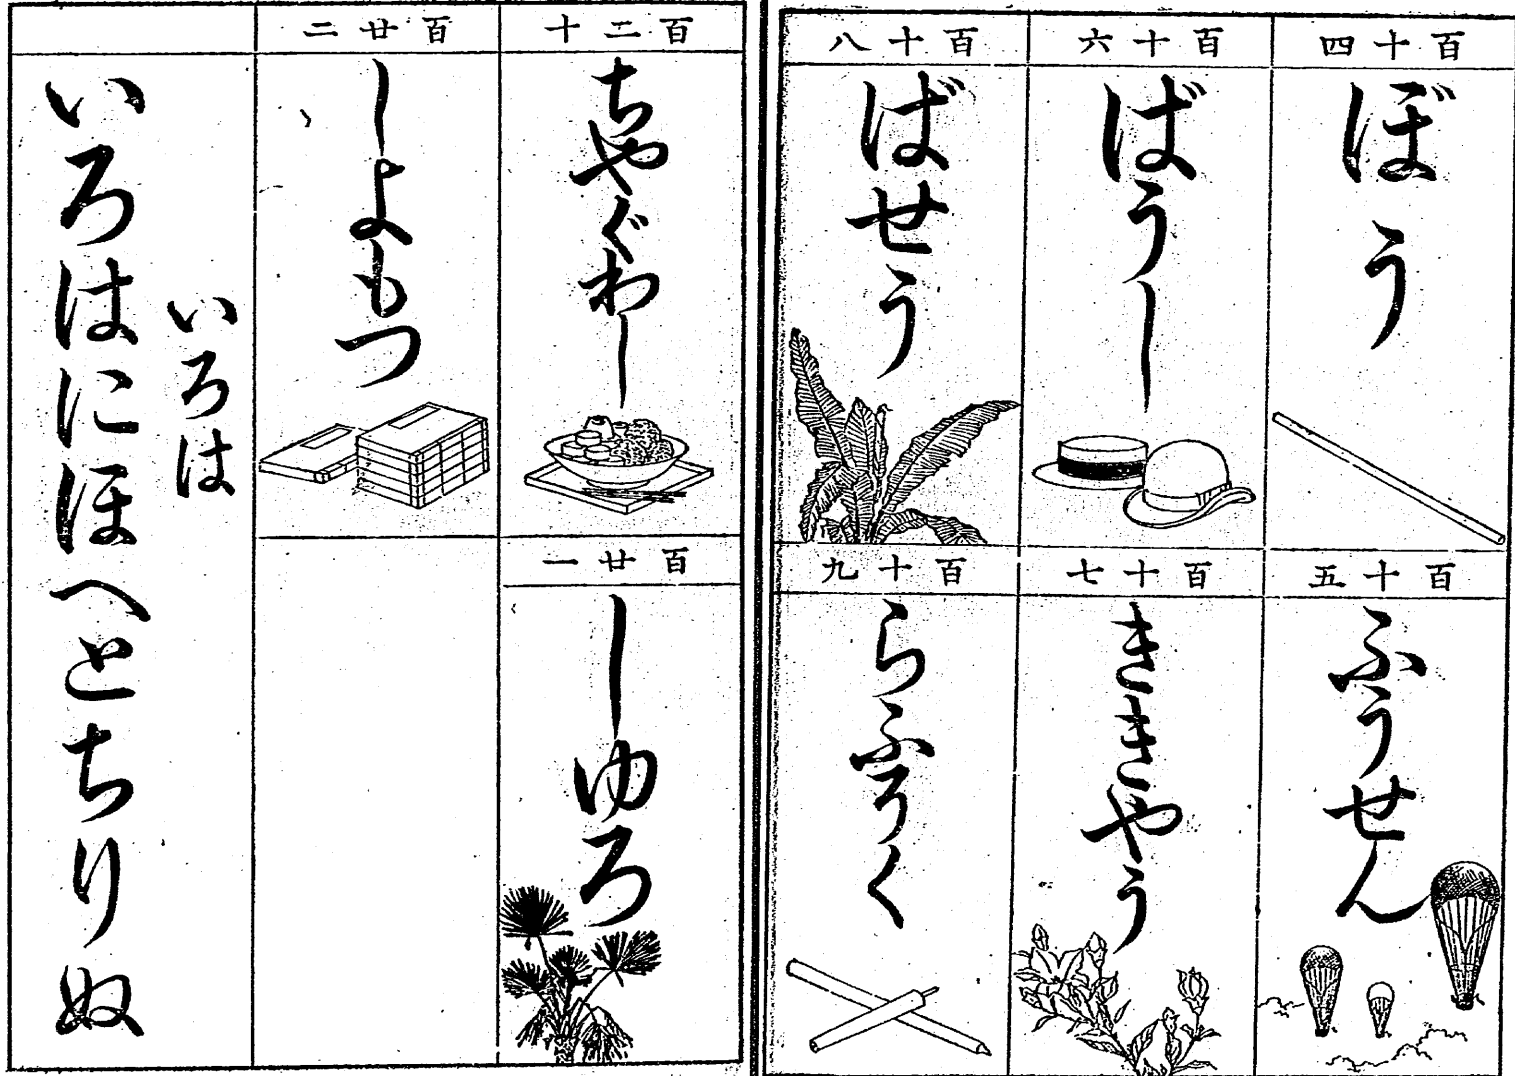 百十四
ぼう
百十五
ふうせん
百十六
ばうし
百十七
ききやう
百十八
ばせう
百十九
らふそく
百二十
ちやぐわし
百廿一
しゆろ
百廿二
しよもつ
いろは
いろはにほへとちりぬ